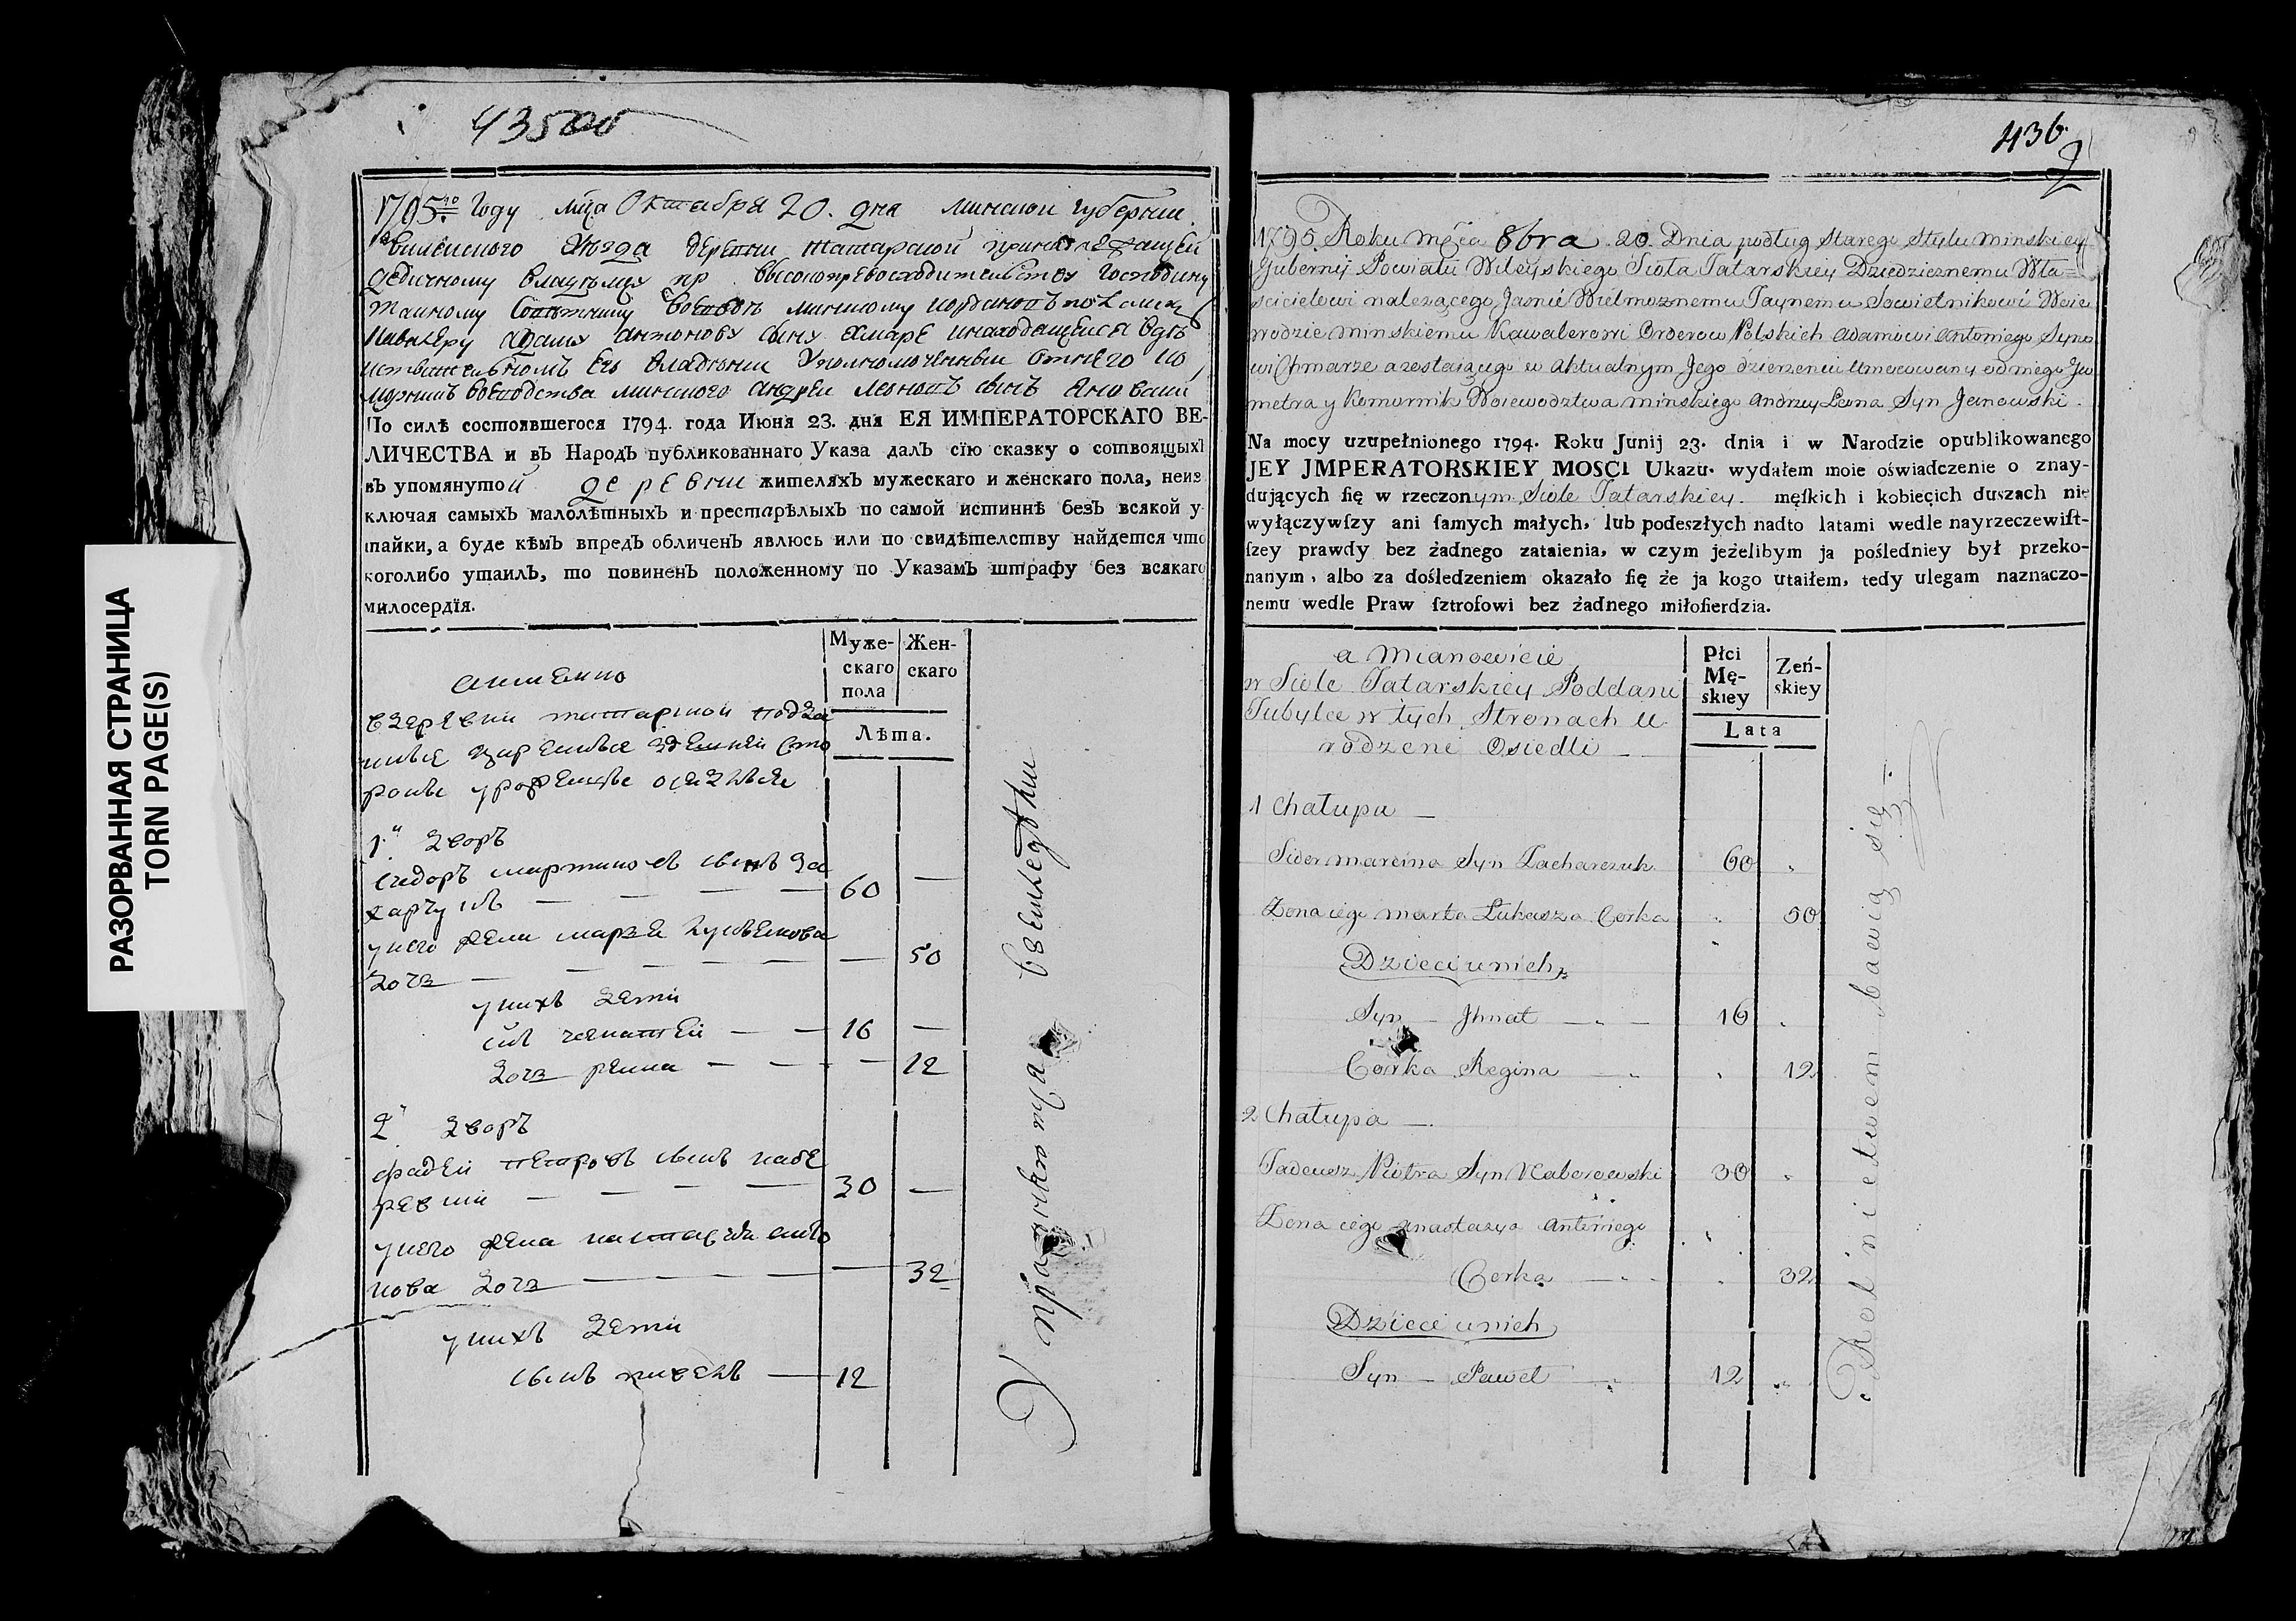 РАЗОРВАННАЯ СТРАНИЦА
TORN PAGE(S)
435
1795го Году мца Октября 20. дня минской губернии
Вилейского уезда деревни татарской принадлежащей
дедичному владельцу его высокопревосходительству господину
тайному советнику воеводе минскому и орденовъ польскихъ
кавалеру адаму антонову сыну хмаре и находящейся въ
действительномъ его владѣнии Уполномоченный от него ко
морникъ воеводства минского андрей леоновъ сынъ яновский
По силѣ состоявшегося 1794. года Июня 23. дня ЕЯ ИМПЕРАТОРСКАГО ВЕ-
ЛИЧЕСТВА и въ Народъ публикованнаго Указа далъ сїю сказку о сотвоящыхъ
въ упомянутой деревни жителяхъ мужескаго и женскаго пола, неиз
ключая самыхъ малолѣтныхъ и престарѣлыхъ по самой истиннѣ безъ всякой у
тайки, а буде кѣмъ впредъ обличенъ явлюсь или по свидѣтелству найдется что
коголибо утаилъ, то повиненъ положенному по Указамъ штрафу без всякаго
милосердїя.
а имянно
Муже-
скаго
пола
Жен-
скаго
Лѣта.
в деревни татарской подда
ные
здешней сто
роны урожденные оседлые
1й дворъ
сидоръ мартиновъ сынъ За
харчукъ — 60 —
у него жена марта лукьянова
дочь — 50
у нихъ дети
сынъ игнатей — 16 —
дочь регина — 12
2й дворъ
фадей петровъ сынъ набо
ревский — 30 —
у него жена настасья анто
нова дочь — 32
у нихъ дети
сынъ павелъ — 12
Упражняются въ земледѣлии
436
1795 Roku mṣca 8bra 20. Dnia podług Starego Stylu minskiey
Gubernij Powiatu Wileyskiego Sioła Tatarskiey Dziedzicznemu Wła=
scicielowi należącego Jasnie Wielmoznemu Taynemu Sowietnikowi Woie
wodzie minskiemu Kawalerowi Orderow Polskich Adamowi Antoniego Syno
wi Chmarze a zostaiącego w aktualnym Jego dzierzeniu Umocowany od niego Jeo
metra y Komornik Woiewodztwa minskiego Andrzey Leona Syn Janowski.
Na mocy uzupełnionego 1794. Roku Junij 23. dnia i w Narodzie opublikowanego
JEY JMPERATORSKIEY MOSCI Ukazu. wydałem moie oświadczenie o znay-
dujących ſię w rzeczonym Siole Tatarskiey męſkich i kobiecich duszach nie
wyłączywſzy ani ſamych małych, lub podeszłych nadto latami wedle nayrzeczewiſt-
ſzey prawdy bez żadnego zataienia, w czym jeżelibym ja poſledniey był przeko-
nanym, albo za doſledzeniem okazało ſię że ja kogo utaiłem, tedy ulegam naznaczo-
nemu wedle Praw ſztrofowi bez żadnego miłoſierdzia.
a Mianowicie
w Siole Tatarskiey Poddani
Tubylce w tych Stronach u
rodzeni Osiedli
Płci
Mę-
skiey
Zeń-
skiey
Lata
1 Chałupa —
Sidor marcina Syn Zacharczuk 60
Zona iego marta Łukasza Corka 50
Dzieci u nich
Syn — Jhnat — 16
Corka Regina — 12
2 Chałupa —
Tadeusz Piotra Syn Naborowski 30
Zona iego anastazya Antoniego
Corka — 32
Dzieci u nich
Syn — Paweł — 12
Rolnictwem bawią się —